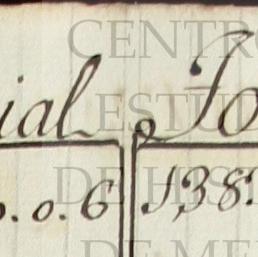 ial To
o. o. 6 1,38
CENTRO
ESTUD
DE HIS
DE ME